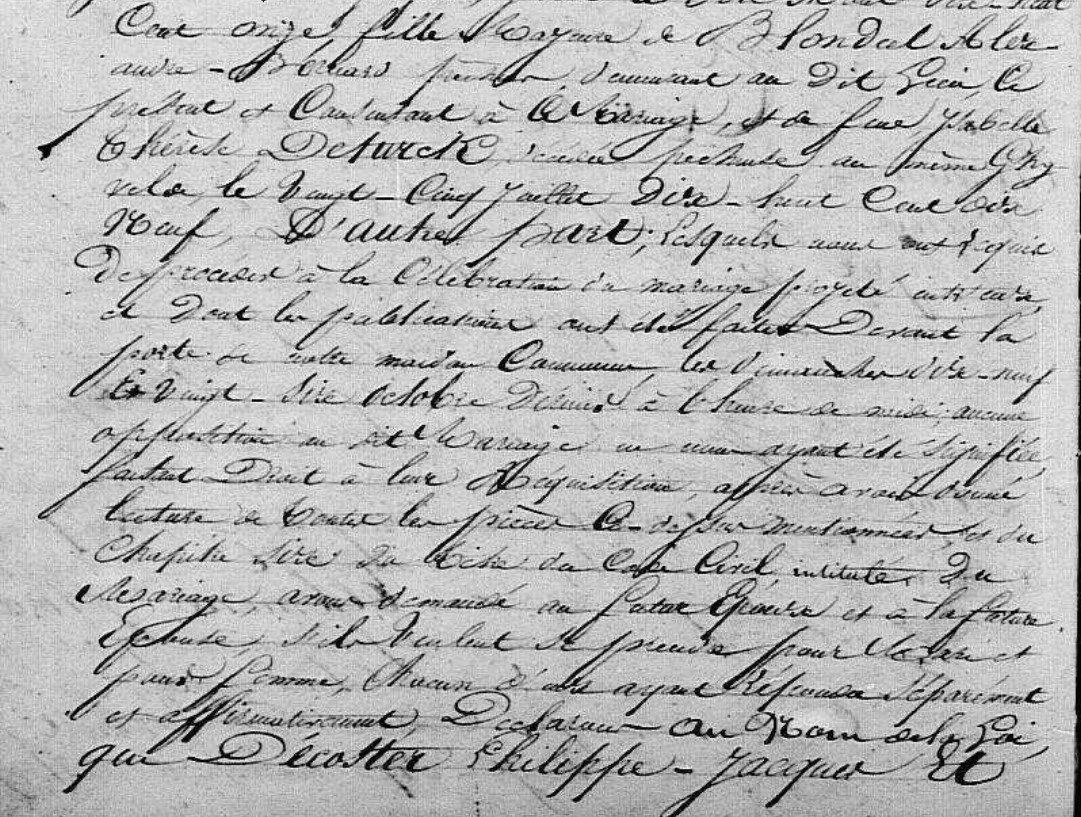 Cent onze, fille Mayeure de Blondal Alex-
andre-Bernard pêcheur, demeurant au dit Lieu, Ce
présent et Consentant à Ce Mariage, et de feue, Isabelle
Thérèse Deturck, décédée pecheuse au même Ghy-
velde, le Vingt-Cinq Juillet Dix-huit Cent dix
Neuf, D'autre part; Lesquels nous ont requis
De procéder à la Célébration du mariage projeté entr'eux,
et Dont les publications ont été faites Devant la
porte de notre maison Commune, les dimanches dix-neuf
Et Vingt-Sixe Octobre Dernier à l'heure de midi; aucune
opposition au dit Mariage ne nous ayant été Signifiée,
faisant Droit à leur Réquisition, après avoir donné
lecture de toutes les pièces Ci-dessus mentionnées, et du
Chapitre Sixe du titre du Code Civil, intitulé Du
Mariage, avons demandé au futur Epoux et à la future
Epouse, s'ils Veulent se prendre pour Mari et
pour femme, Chacun d'eux ayant Répondu Séparément
et affirmativement, Déclarons au Nom de la Loi,
que Décotter Philippe-Jacques Et